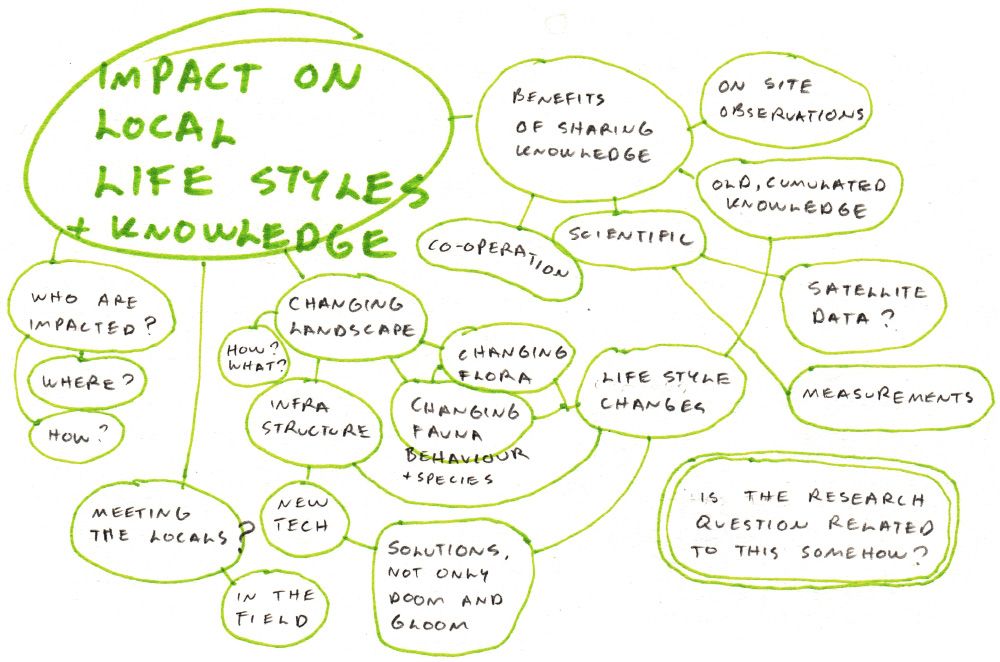 IMPACT ON
LOCAL
LIFE STYLES
+ KNOWLEDGE
BENEFITS
OF SHARING
KNOWLEDGE
ON SITE
OBSERVATIONS
OLD, CUMULATED
KNOWLEDGE
SCIENTIFIC
CO-OPERATION
SATELLITE
DATA?
MEASUREMENTS
WHO ARE
IMPACTED?
WHERE?
HOW?
CHANGING
LANDSCAPE
HOW?
WHAT?
CHANGING
FLORA
CHANGING
FAUNA
BEHAVIOUR
+ SPECIES
INFRA
STRUCTURE
LIFE STYLE
CHANGES
NEW
TECH
SOLUTIONS,
NOT ONLY
DOOM AND
GLOOM
MEETING
THE LOCALS?
IN THE
FIELD
IS THE RESEARCH
QUESTION RELATED
TO THIS SOMEHOW?